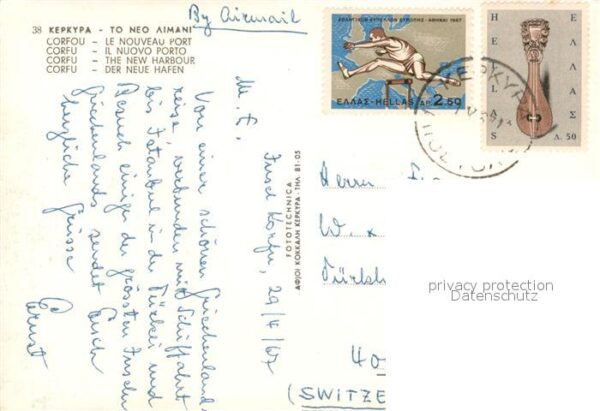 38 ΚΕΡΚΥΡΑ - ΤΟ ΝΕΟ ΛΙΜΑΝΙ
CORFOU - LE NOUVEAU PORT
CORFU - IL NUOVO PORTO
CORFU - THE NEW HARBOUR
CORFU - DER NEUE HAFEN
By Airmail
ΕΛΛΑΣ-HELLAS ΔΡ. 2.50
HELLAS
ΕΛΛΑΣ
Λ. 50
Insel Korfu, 29/4/67
M. L.
Von einer schönen Griechenland-
reise, verbunden mit Schiffahrt
bis Istanbul in der Türkei und
Besuch einiger der grössten Inseln
Griechenlands sendet Euch
herzliche Grüsse
Ernst
FOTOTECHNICA
ΑΦΙΟΙ ΚΟΚΚΑΛΗ ΚΕΡΚΥΡΑ - ΤΗΛ 81-05
Herrn
W.
40
(SWITZE
privacy protection
Datenschutz